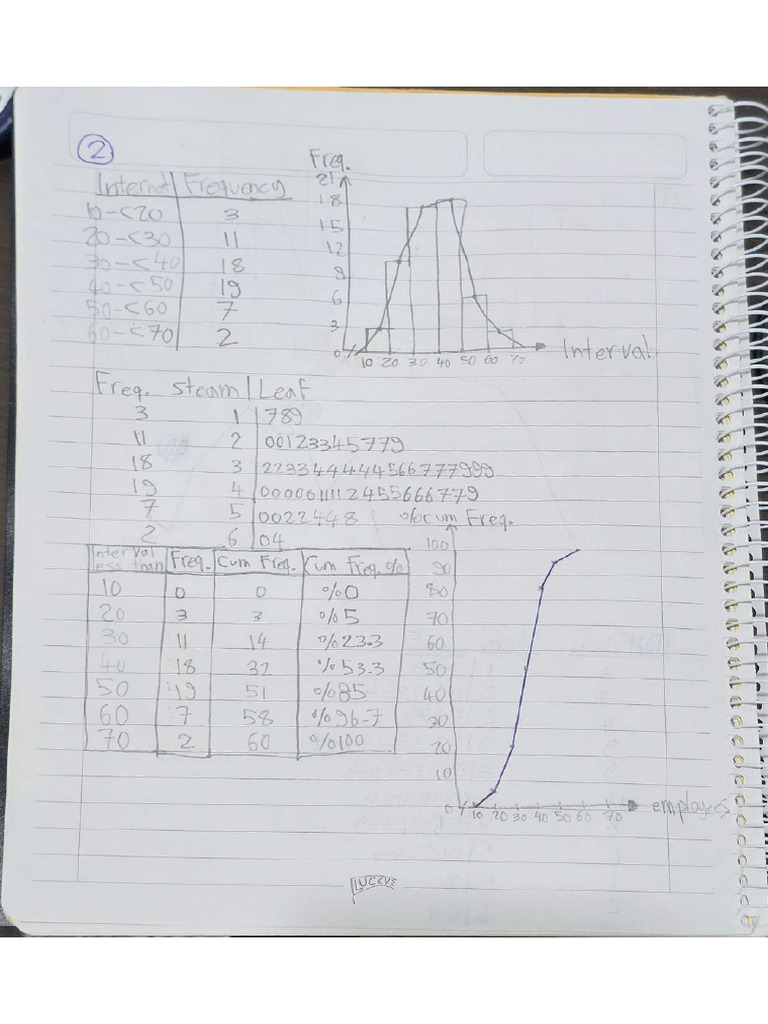 2
Internt Frequency
10-<20 3
20-<30 11
30-<40 18
40-<50 19
50-<60 7
60-<70 2
Freq.
21
18
15
12
9
6
3
0
10 20 30 40 50 60 70 Interval
Freq. Steam Leaf
3 1 789
11 2 00123345779
18 3 223344444566777999
19 4 0000011112455666779
7 5 0022448
2 6 04
Interval less than Freq. Cum Freq. Cum Freq.%
10 0 0 %0
20 3 3 %5
30 11 14 %23.3
40 18 32 %53.3
50 19 51 %85
60 7 58 %96-7
70 2 60 %100
%cum Freq.
100
90
80
70
60
50
40
30
20
10
0
10 20 30 40 50 60 70 employees
LUCKYS